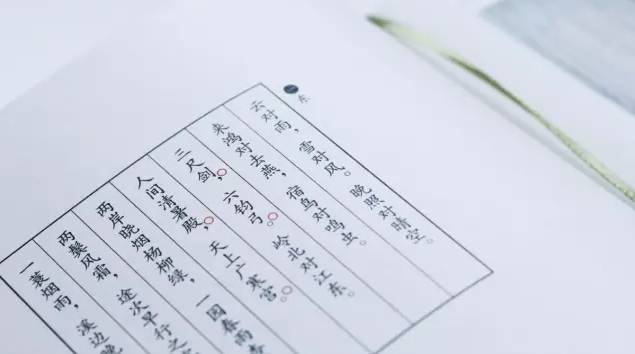 一 东
云对雨，雪对风。晚照对晴空。
来鸿对去燕，宿鸟对鸣虫。
三尺剑，六钧弓。岭北对江东。
人间清暑殿，天上广寒宫。
两岸晓烟杨柳绿，一园春雨
两鬓风霜，途次早行之
一蓑烟雨，溪边晚